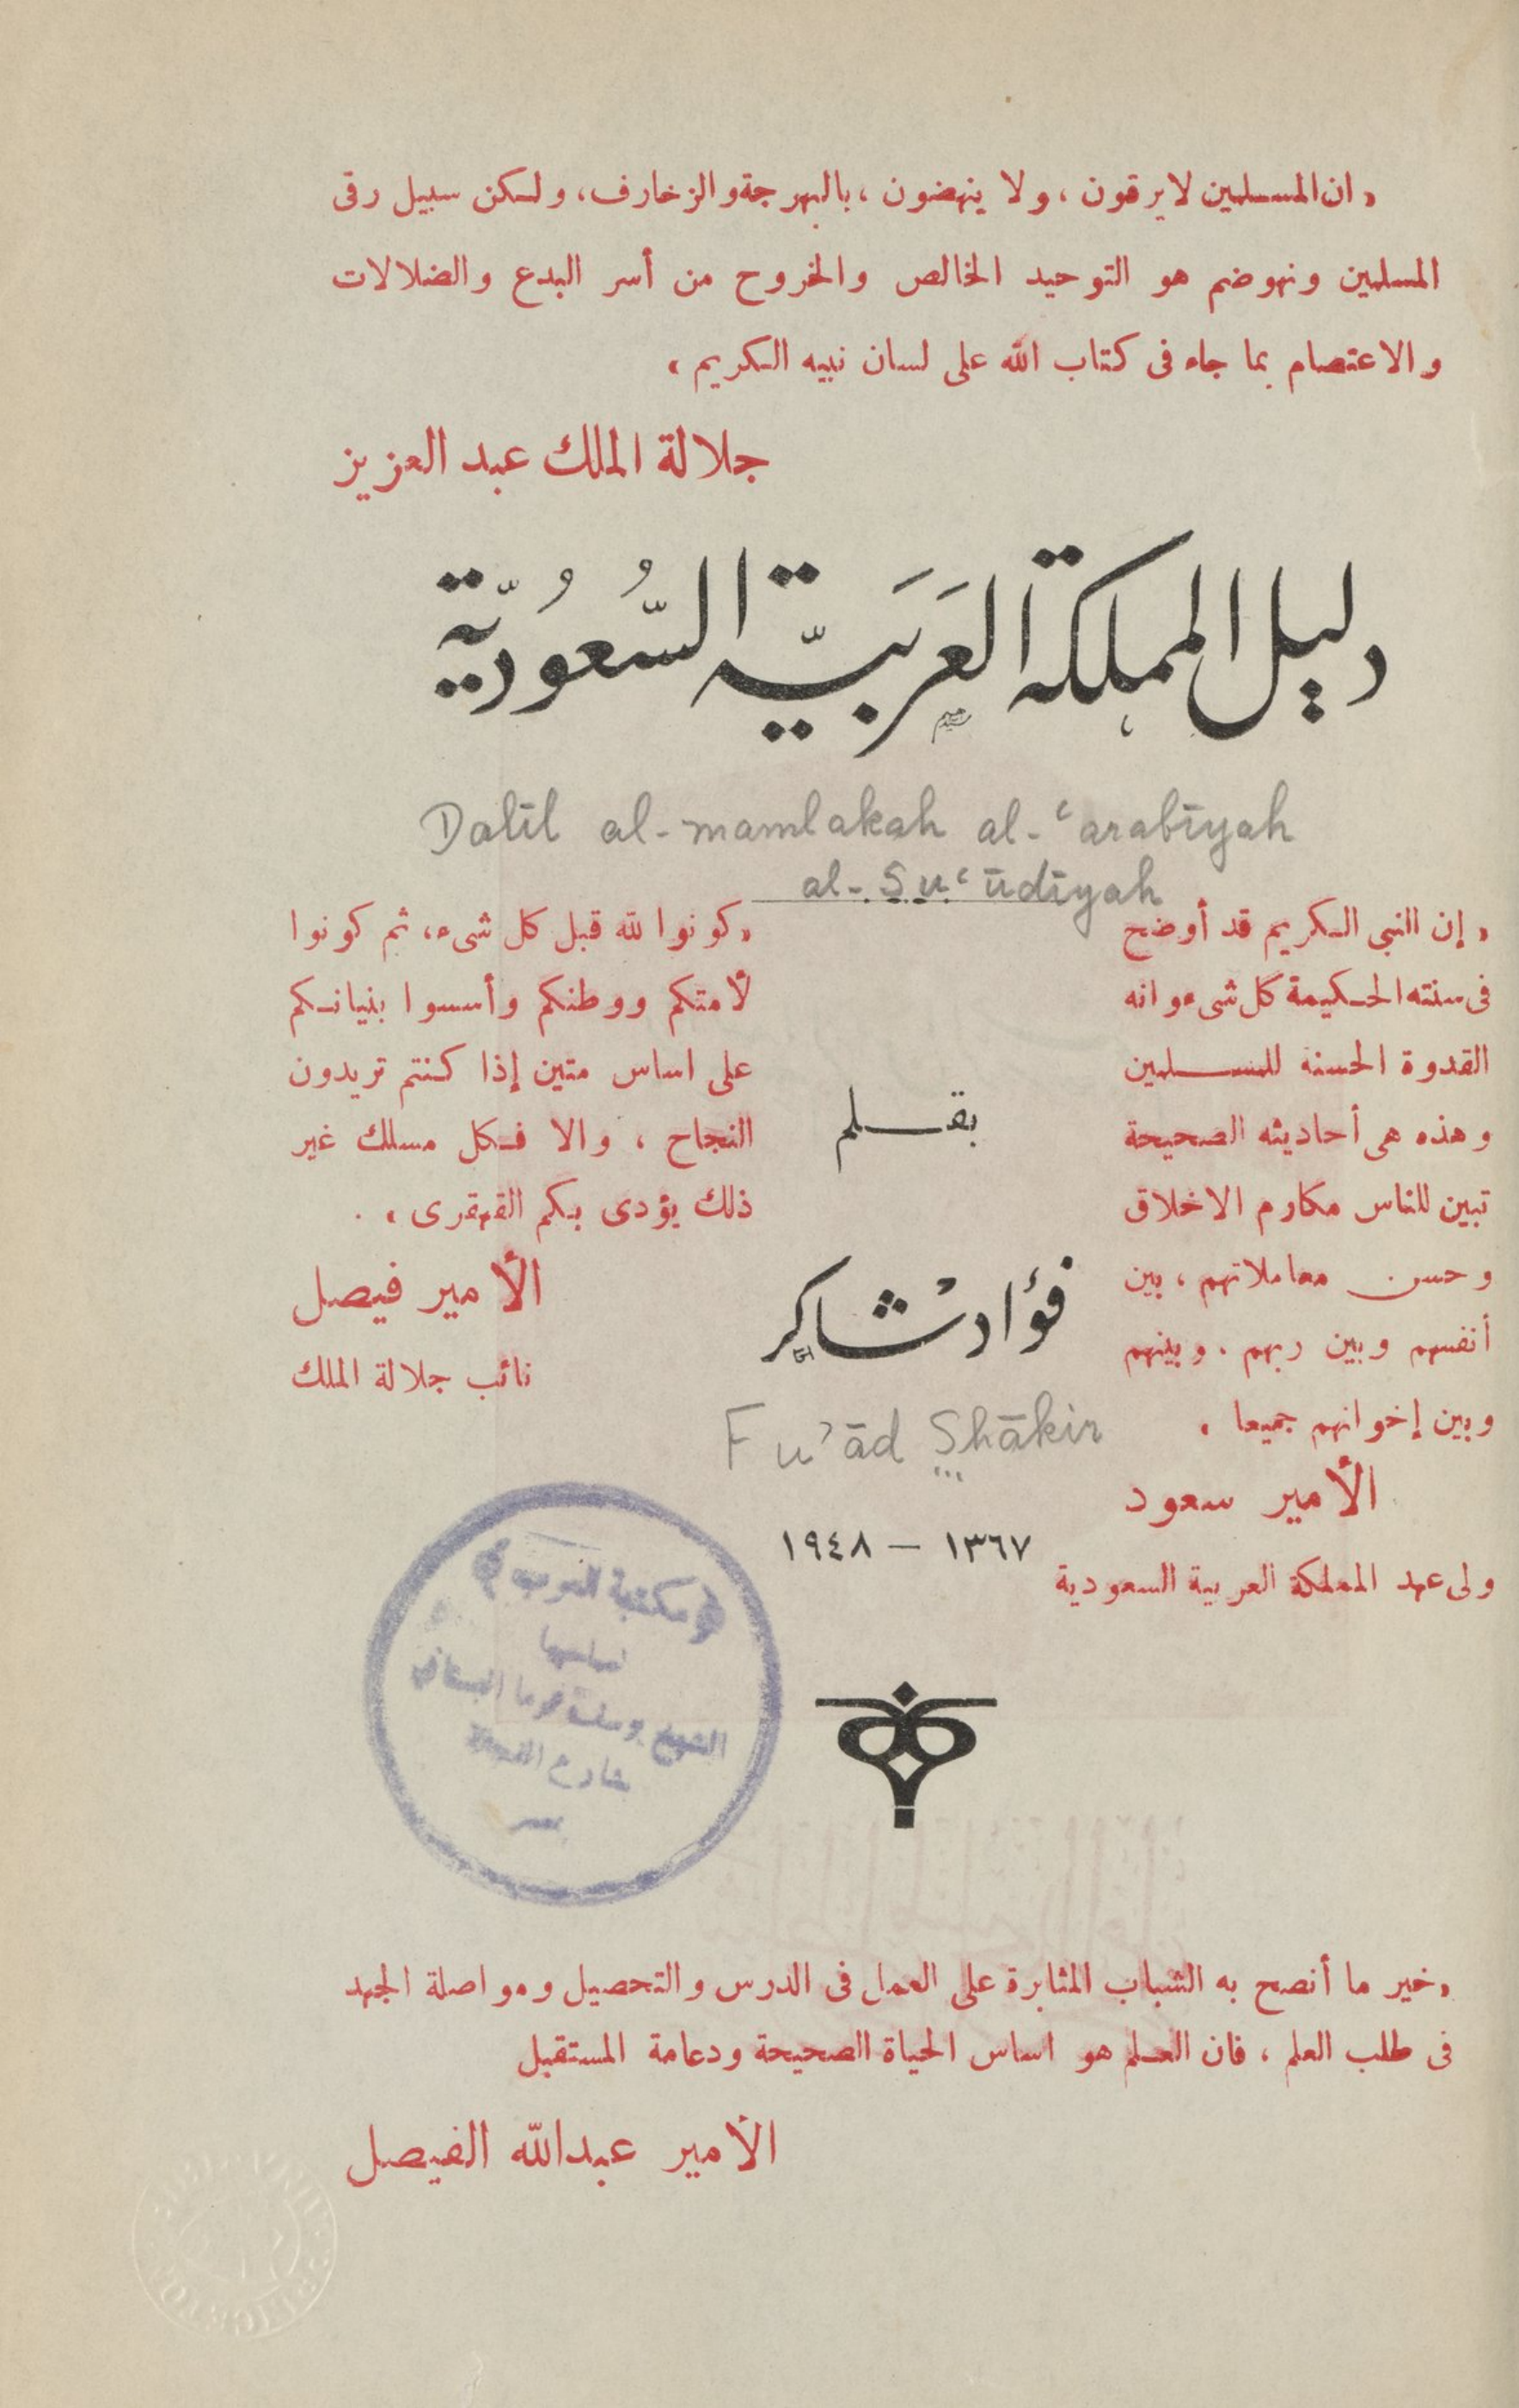 «ان المسلمين لا يرقون، ولا ينهضون، بالبهرجة والزخارف، ولكن سبيل رقى
المسلمين ونهوضهم هو التوحيد الخالص والخروح من أسر البدع والضلالات
والاعتصام بما جاء فى كتاب الله على لسان نبيه الكريم»
جلالة الملك عبد العزيز
دليل المملكة العَرَبيَّة السُّعُوديَّة
Dalīl al-mamlakah al-ʿarabīyah
al-Suʿūdīyah
«إن النبى الكريم قد أوضح
فى سنته الحكيمة كل شىء وانه
القدوة الحسنة للمسلمين
وهذه هى أحاديثه الصحيحة
تبين للناس مكارم الاخلاق
وحسن معاملاتهم، بين
أنفسهم وبين ربهم. وبينهم
وبين إخوانهم جميعا»
الأمير سعود
ولى عهد المملكة العربية السعودية
«كونوا لله قبل كل شىء، ثم كونوا
لأمتكم ووطنكم وأسسوا بنيانكم
على اساس متين إذا كنتم تريدون
النجاح، والا فكل مسلك غير
ذلك يؤدى بكم القهقرى».
الأمير فيصل
نائب جلالة الملك
بقلم
فؤاد شاكر
Fu'ād Shākir
١٣٦٧ – ١٩٤٨
مكتبة العرب
«خير ما أنصح به الشباب المثابرة على العمل فى الدرس والتحصيل ومواصلة الجهد
فى طلب العلم، فان العلم هو اساس الحياة الصحيحة ودعامة المستقبل
الأمير عبدالله الفيصل